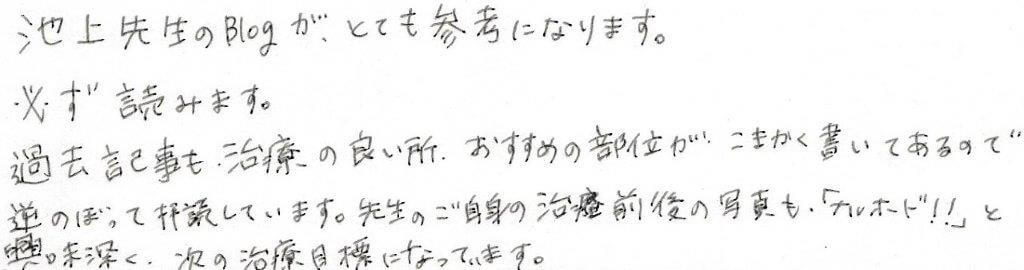 池上先生のBlogが、とても参考になります。
必ず読みます。
過去記事も、治療の良い所、おすすめの部位が、こまかく書いてあるので
逆のぼって拝読しています。先生のご自身の治療前後の写真も、「ナルホド!!」と
興味深く、次の治療目標になっています。